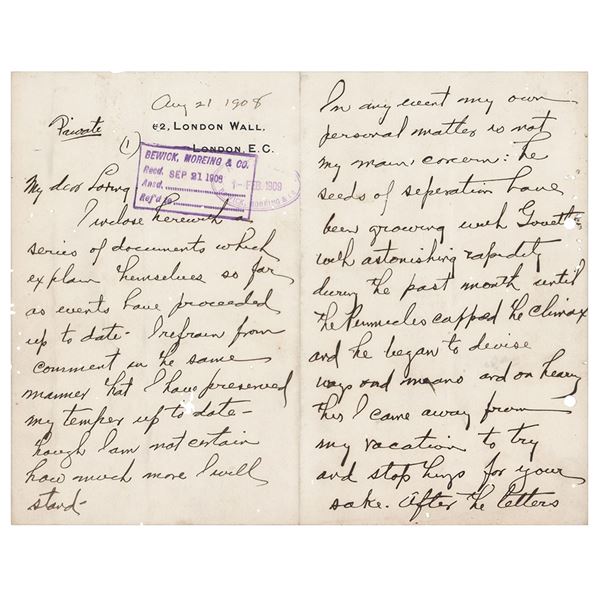 Aug 21 1908
Private
62, LONDON WALL.
(1)
LONDON, E.C.
BEWICK, MOREING & CO.
Recd. SEP 21 1908
Ansd.
Ref'd to
1 - FEB. 1909
BEWICK, MOREING & Co
My dear Loring
I inclose herewith a
series of documents which
explain themselves so far
as events have proceeded
up to date - I refrain from
comment in the same
manner that I have preserved
my temper up to date -
though I am not certain
how much more I will
stand -
In any event my own
personal matter is not
my main concern: the
seeds of seperation have
been growing with Govett
with astonishing rapidity
during the past month until
the Pinnicles capped the climax
and he began to devise
ways and means and on hearing
this I came away from
my vacation to try
and stop things for your
sake. After the letters